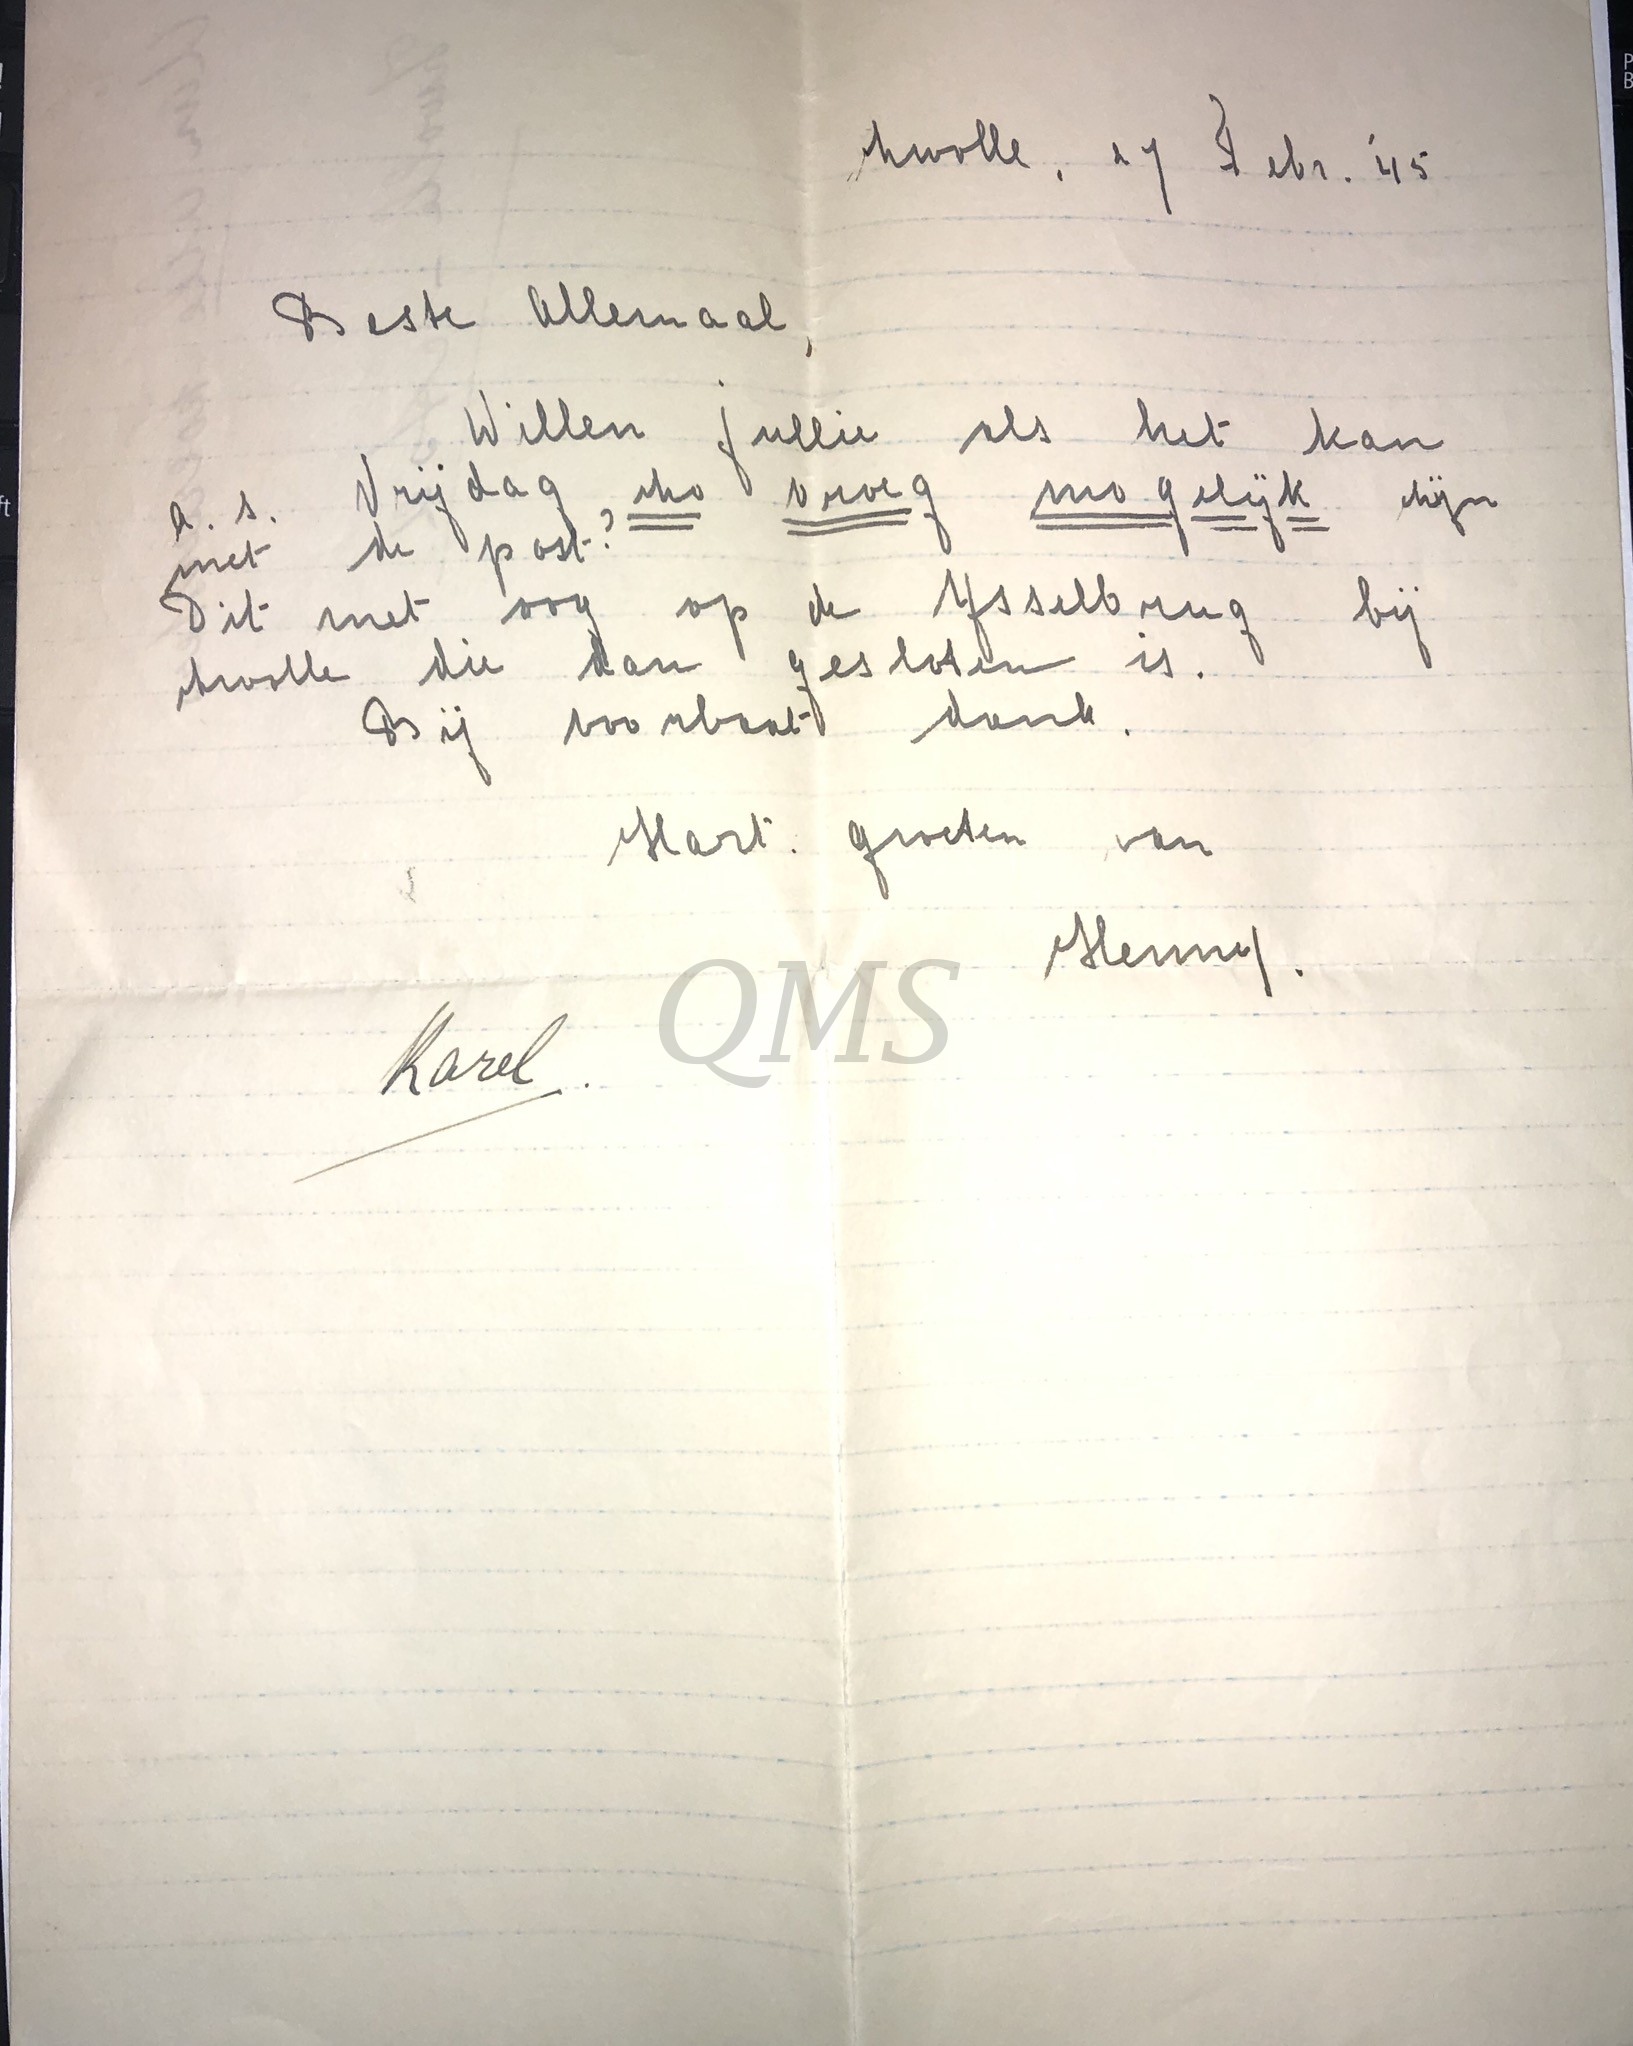 Zwolle, 27 Febr. '45
Beste Allemaal,
Willen jullie als het kan
a.s. Vrijdag zo vroeg mogelijk zijn
met de post?
Dit met oog op de IJsselbrug bij
Zwolle die dan gesloten is.
Bij voorbaat dank.
Hart. groeten van
Henny.
QMS
Karel.